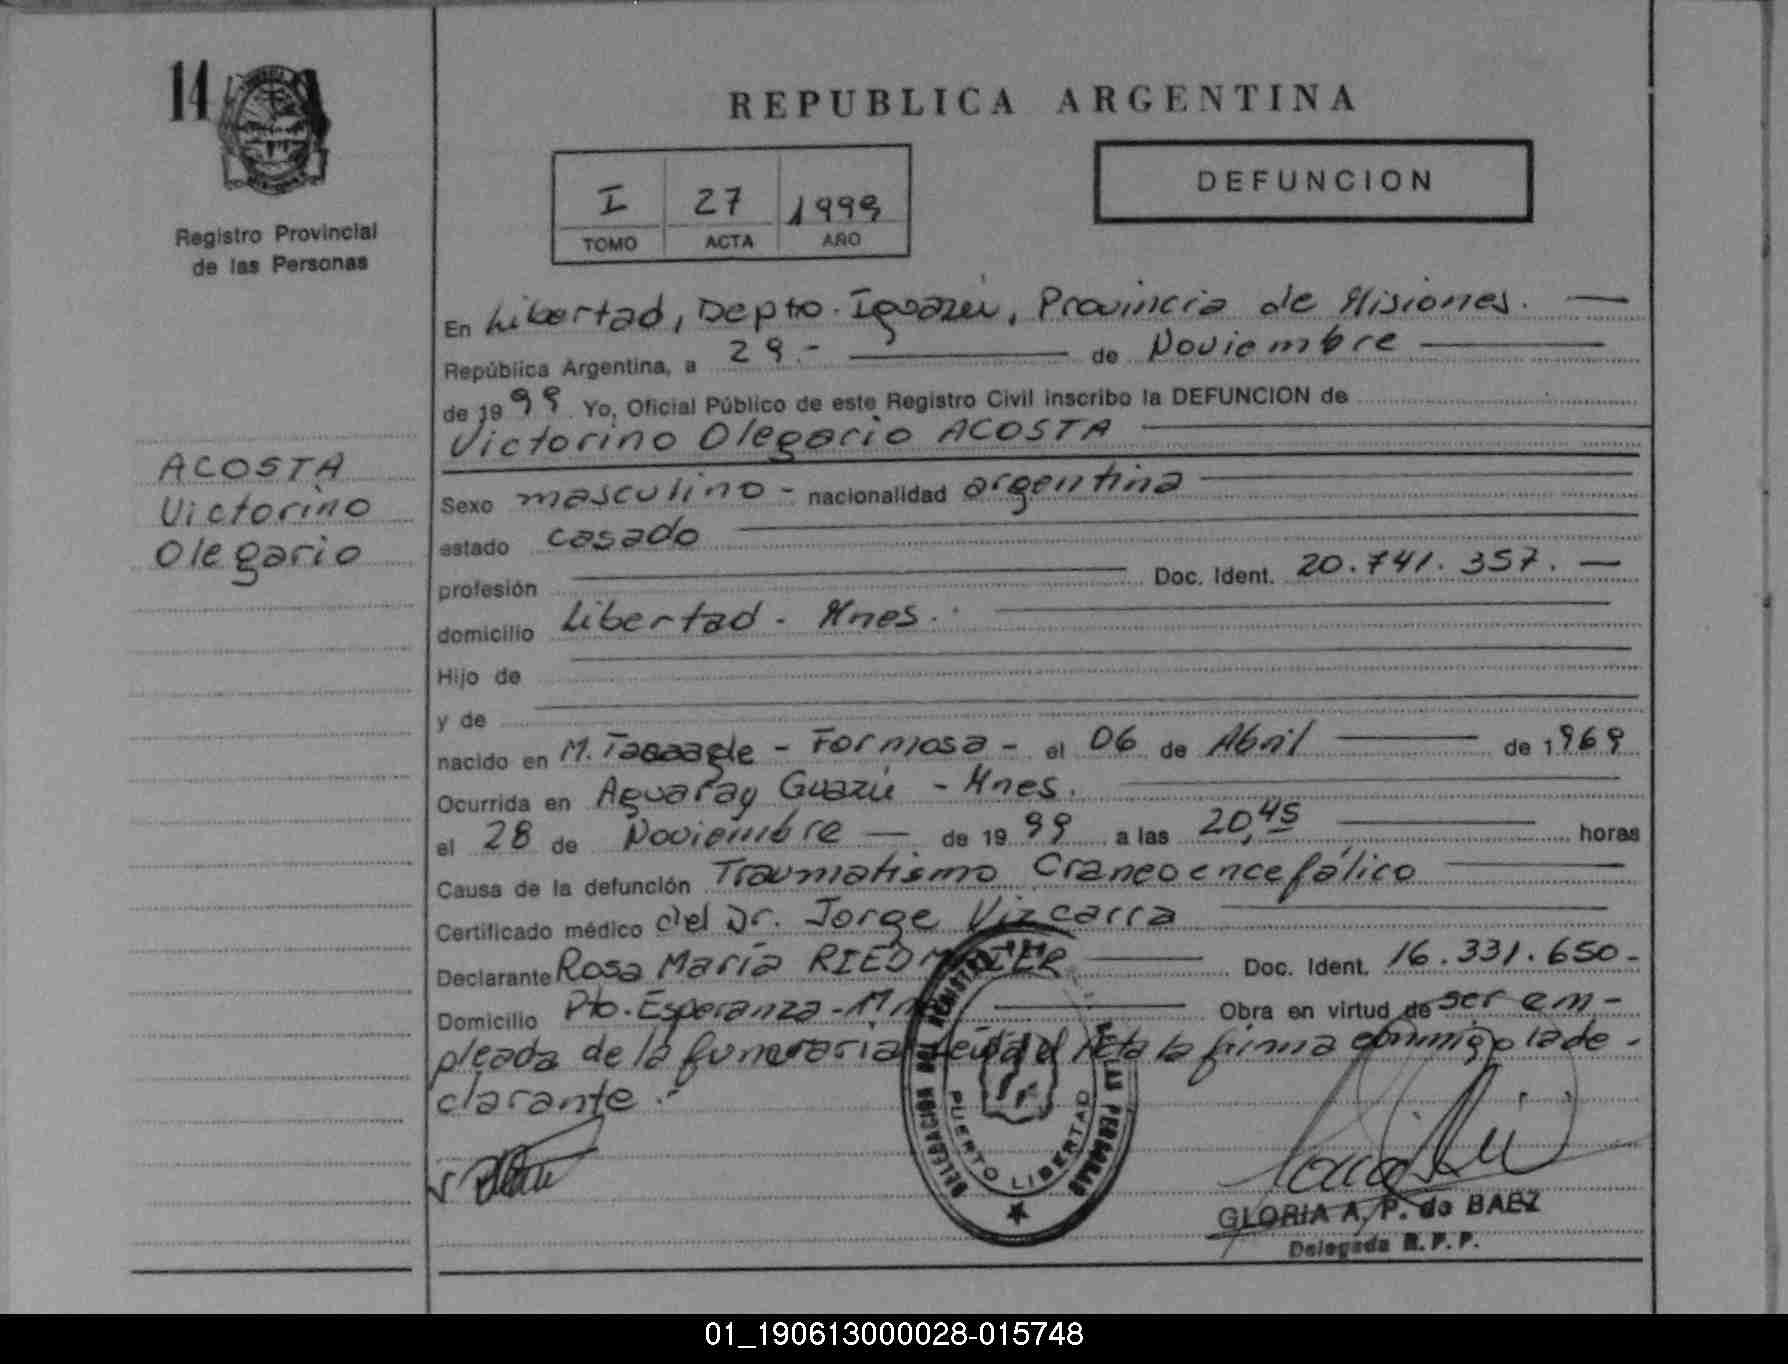 14
Registro Provincial
de las Personas
ACOSTA
Victorino
Olegario
REPUBLICA ARGENTINA
I 27 1999
TOMO ACTA AÑO
DEFUNCION
En Libertad, Depto. Iguazú, Provincia de Misiones.
República Argentina, a 29.- de Noviembre
de 1999 Yo, Oficial Público de este Registro Civil inscribo la DEFUNCION de
Victorino Olegario ACOSTA
Sexo masculino - nacionalidad argentina
estado casado
profesión Doc. Ident. 20.741.357.
domicilio Libertad - Mnes.
Hijo de
y de
nacido en M. - Formosa - el 06 de Abril de 1969
Ocurrida en Aguaray Guazú - Mnes.
el 28 de Noviembre de 1999 a las 20,45 horas
Causa de la defunción Traumatismo Craneoencefálico
Certificado médico del Dr. Jorge Vizcarra
Declarante Rosa María Doc. Ident. 16.331.650-
Domicilio Pto. Esperanza - Obra en virtud de ser em-
pleada de la funeraria Leída el Acta la firma conmigo la de-
clarante.
DELEGACION DEL REGISTRO DE LAS PERSONAS
PUERTO LIBERTAD
GLORIA A. P. de BAEZ
Delegada R.P.P.
01_190613000028-015748